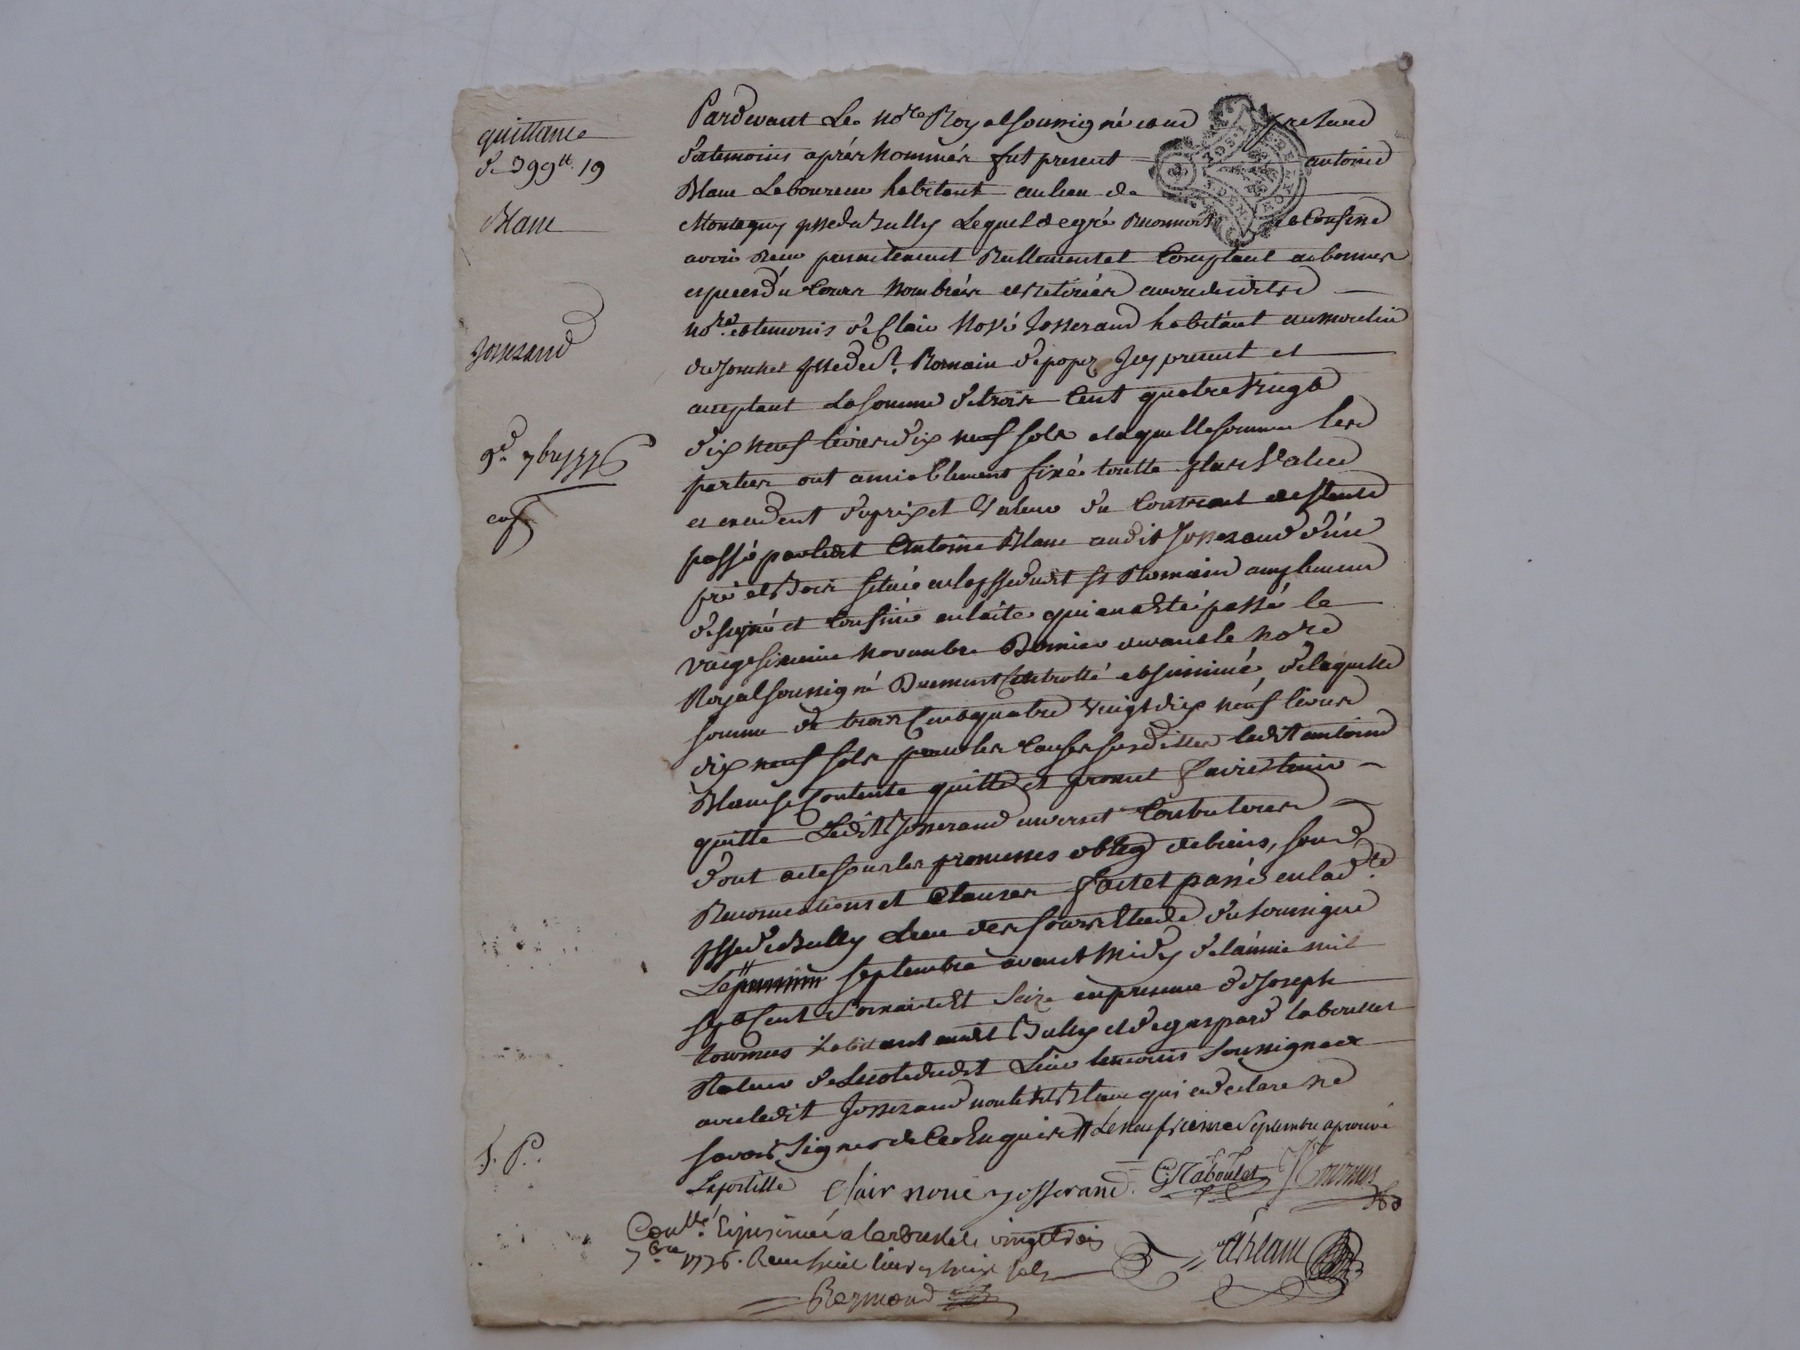 quittance
de 399tt 19
Blanc
Josserand
9e 7bre 1776
Pardevant Le no.re Royal soussigné et en presence
des temoins aprés nommés fut present antoine
Blanc Laboureur habitant au lieu de
Montagny psse de Bully Lequel de gré Reconnoit et Confesse
avoir Reçu presentement Reellement et Comptant en bonnes
especes du Cours Nombrées et Retirées au vu desdits
no.re et temoins de Clair Noyé Josserand habitant au moulin
de psse de St. Romain de popez Icy present et
acceptant La somme de trois Cent quatre Vingt
dix neuf livres dix neuf sols a laquelle somme les
parties ont amiablement fixé toutte plus Valeur
et du prix et Valeur du Contract de Vente
passé par ledit Antoine Blanc audit Josserand d'un
pré et Bois situé en la psse dudit St Romain amplement
designé et Confiné en l'acte qui en a Eté passé le
novembre Dernier devant le No.re
Royal soussigné Duement Controllé et insinué, de laquelle
somme de trois Cent quatre Vingt dix neuf livres
dix neuf sols pour les Causes susdittes ledit antoine
Blanc se Contente quitte et promet faire tenir
quitte Ledit Josserand envers et Contre tous
dont acte sous les promesses oblig de biens, soum
Renonciations et Clauses fait et passé en lad.te
psse de Bully Lieu des Etude du soussigné
Le septembre avant Midy de l'année mil
sept Cent Soixante Et Seize en presence de Joseph
tournus habitant audit Bully et de gaspard taboulet
dudit Lieu temoins soussignes
avec ledit Josserand non ledit Blanc qui a declare ne
savoir Signer de Ce Enquis # Le neufvieme septembre aprouvé
S. P.
Clair noué josserand. G Taboulet JTournus
Con.llé Et insinué a Larbresle le vingt trois
7bre 1776. Reçu huit livres seize sols
Arlanc
Reymond